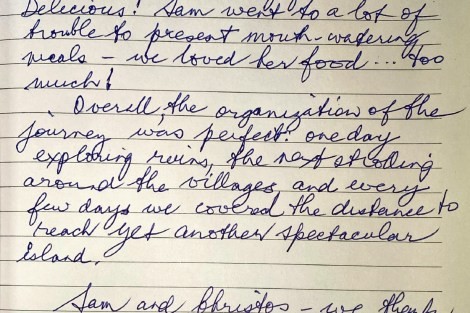 Delicious! Sam went to a lot of
trouble to present mouth-watering
meals - we loved her food... too
much!
Overall, the organization of the
journey was perfect: one day
exploring ruins, the next strolling
around the villages, and every
few days we covered the distance to
reach yet another spectacular
island.
Sam and Christos - we thank